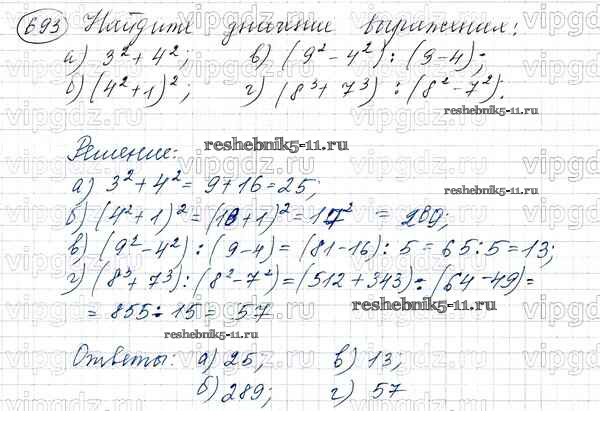 693 Найдите значение выражения:
а) 3² + 4²; в) (9² - 4²) : (9 - 4);
б) (4² + 1)²; г) (8³ + 7³) : (8² - 7²).
reshebnik5-11.ru
reshebnik5-11.ru
Решение:
а) 3² + 4² = 9 + 16 = 25;
б) (4² + 1)² = (16 + 1)² = 17² = 289;
в) (9² - 4²) : (9 - 4) = (81 - 16) : 5 = 65 : 5 = 13;
г) (8³ + 7³) : (8² - 7²) = (512 + 343) : (64 - 49) =
= 855 : 15 = 57
reshebnik5-11.ru
reshebnik5-11.ru
Ответы: а) 25; в) 13;
б) 289; г) 57
vipgdz.ru